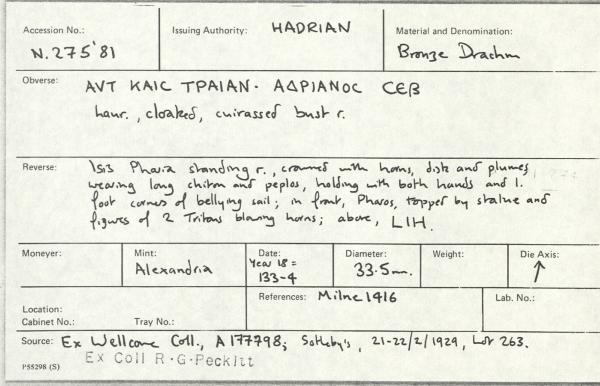 Accession No.: Issuing Authority: HADRIAN Material and Denomination:
N.275'81 Bronze Drachm
Obverse: ΑVΤ ΚΑΙC ΤΡΑΙΑΝ· ΑΔΡΙΑΝΟC CЄΒ
laur., cloaked, cuirassed bust r.
Reverse: Isis Pharia standing r., crowned with horns, disk and plumes,
wearing long chiton and peplos, holding with both hands and l.
foot corners of bellying sail; in front, Pharos, topped by statue and
figures of 2 Tritons blowing horns; above, LIH.
Moneyer: Mint: Date: Diameter: Weight: Die Axis:
Alexandria Year 18 = 33.5mm. ↑
133-4
References: Milne 1416 Lab. No.:
Location:
Cabinet No.: Tray No.:
Source: Ex Wellcome Coll., A177798; Sotheby's, 21-22/2/1929, Lot 263.
Ex Coll R.G.Peckitt
P55298 (S)